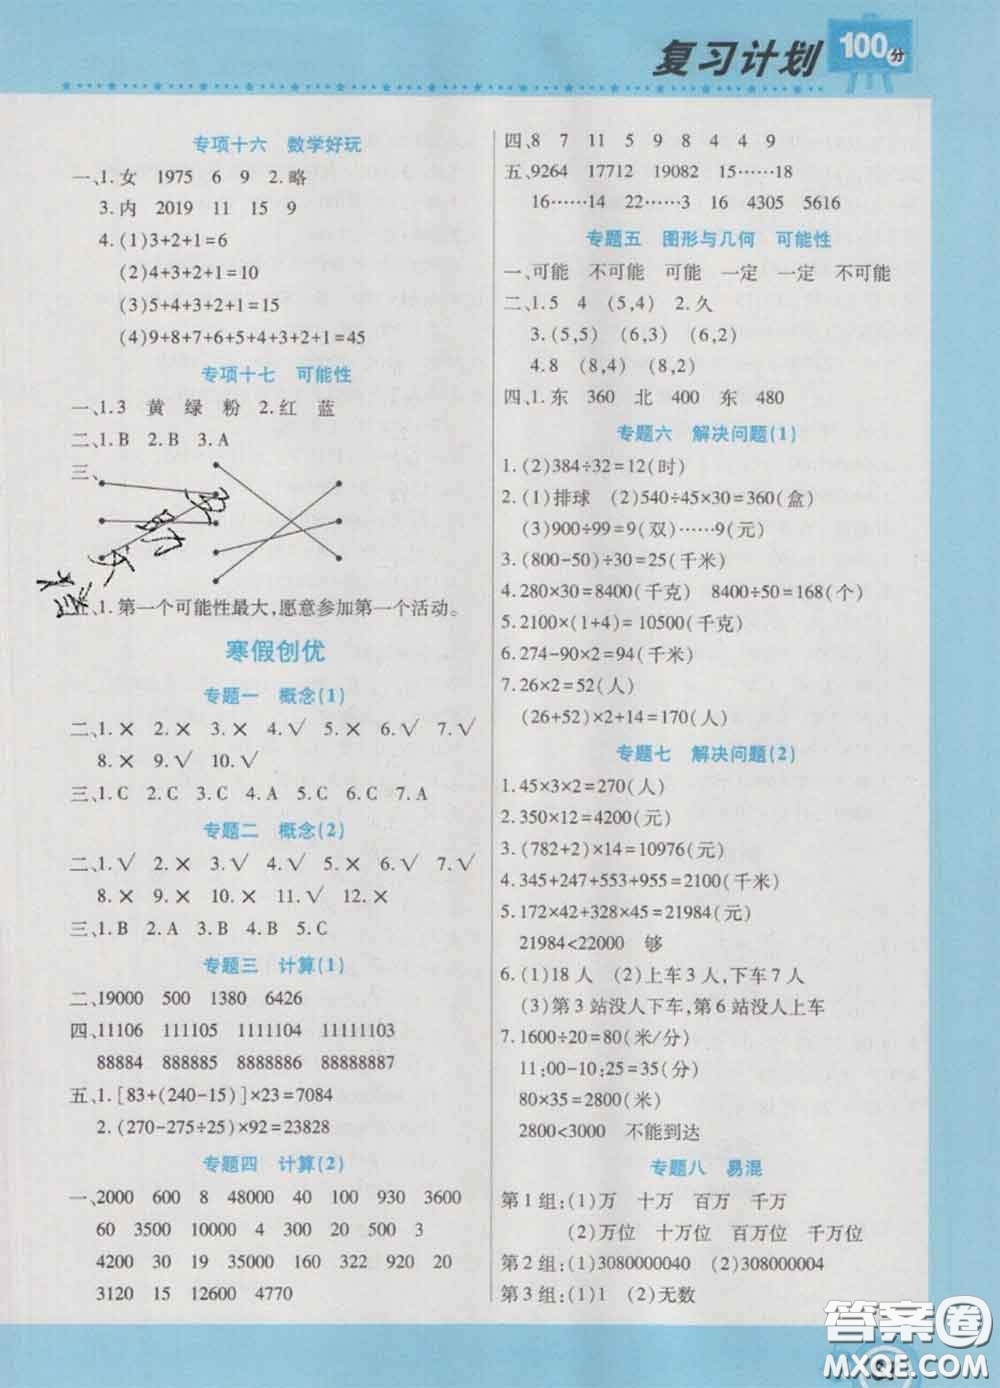 复习计划
100分
专项十六 数学好玩
一、1.女 1975 6 9 2.略
3.内 2019 11 15 9
4.(1)3+2+1=6
(2)4+3+2+1=10
(3)5+4+3+2+1=15
(4)9+8+7+6+5+4+3+2+1=45
专项十七 可能性
一、1.3 黄 绿 粉 2.红 蓝
二、1.B 2.B 3.A
三、
1.第一个可能性最大,愿意参加第一个活动。
寒假创优
专题一 概念(1)
二、1.× 2.× 3.× 4.√ 5.× 6.√ 7.√
8.× 9.√ 10.√
三、1.C 2.C 3.C 4.A 5.C 6.C 7.A
专题二 概念(2)
二、1.√ 2.× 3.√ 4.√ 5.× 6.√ 7.√
8.× 9.× 10.× 11.√ 12.×
三、1.B 2.A 3.B 4.B 5.C
专题三 计算(1)
二、19000 500 1380 6426
四、11106 111105 1111104 11111103
88884 888885 8888886 88888887
五、1.[83+(240-15)]×23=7084
2.(270-275÷25)×92=23828
专题四 计算(2)
一、2000 600 8 48000 40 100 930 3600
60 3500 10000 4 300 20 500 3
4200 30 19 35000 160 120 20
3120 15 12600 4770
四、8 7 11 5 9 8 4 4 9
五、9264 17712 19082 15……18
16……14 22……3 16 4305 5616
专题五 图形与几何 可能性
一、可能 不可能 可能 一定 一定 不可能
二、1.5 4 (5,4) 2.久
3.(5,5) (6,3) (6,2)
4.8 (8,4) (8,2)
四、1.东 360 北 400 东 480
专题六 解决问题(1)
1.(2)384÷32=12(时)
2.(1)排球 (2)540÷45×30=360(盒)
(3)900÷99=9(双)……9(元)
3.(800-50)÷30=25(千米)
4.280×30=8400(千克) 8400÷50=168(个)
5.2100×(1+4)=10500(千克)
6.274-90×2=94(千米)
7.26×2=52(人)
(26+52)×2+14=170(人)
专题七 解决问题(2)
1.45×3×2=270(人)
2.350×12=4200(元)
3.(782+2)×14=10976(元)
4.345+247+553+955=2100(千米)
5.172×42+328×45=21984(元)
21984<22000 够
6.(1)18人 (2)上车3人,下车7人
(3)第3站没人下车,第6站没人上车
7.1600÷20=80(米/分)
11:00-10:25=35(分)
80×35=2800(米)
2800<3000 不能到达
专题八 易混
第1组:(1)万 十万 百万 千万
(2)万位 十万位 百万位 千万位
第2组:(1)3080000040 (2)308000004
第3组:(1)1 (2)无数
答案圈
MXQE.COM